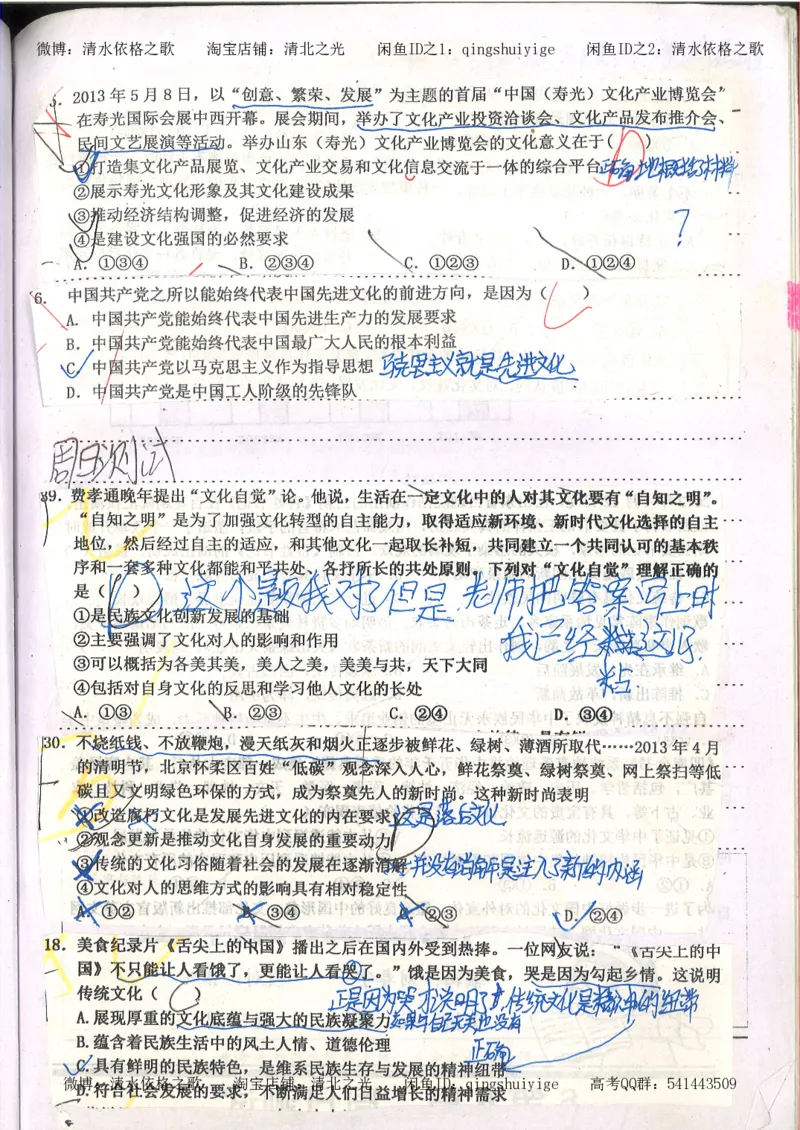 微博：清水依格之歌　　淘宝店铺：清北之光　　闲鱼ID之1：qingshuiyige　　闲鱼ID之2：清水依格之歌
5. 2013年5月8日，以“创意、繁荣、发展”为主题的首届“中国（寿光）文化产业博览会”
在寿光国际会展中西开幕。展会期间，举办了文化产业投资洽谈会、文化产品发布推介会、
民间文艺展演等活动。举办山东（寿光）文化产业博览会的文化意义在于（　　）
①打造集文化产品展览、文化产业交易和文化信息交流于一体的综合平台 正确地概括了材料
②展示寿光文化形象及其文化建设成果
③推动经济结构调整，促进经济的发展
④是建设文化强国的必然要求 ?
A. ①③④　　B. ②③④　　C. ①②③　　D. ①②④
6. 中国共产党之所以能始终代表中国先进文化的前进方向，是因为（ C ）
A. 中国共产党能始终代表中国先进生产力的发展要求
B. 中国共产党能始终代表中国最广大人民的根本利益
C. 中国共产党以马克思主义作为指导思想 马克思主义就是先进文化
D. 中国共产党是中国工人阶级的先锋队
周日次测试
39. 费孝通晚年提出“文化自觉”论。他说，生活在一定文化中的人对其文化要有“自知之明”。
“自知之明”是为了加强文化转型的自主能力，取得适应新环境、新时代文化选择的自主
地位，然后经过自主的适应，和其他文化一起取长补短，共同建立一个共同认可的基本秩
序和一套多种文化都能和平共处、各抒所长的共处原则。下列对“文化自觉”理解正确的
是（ D ） 这个题我对了但是老师把答案写上时
①是民族文化创新发展的基础
②主要强调了文化对人的影响和作用 我已经粘这儿了
③可以概括为各美其美，美人之美，美美与共，天下大同
④包括对自身文化的反思和学习他人文化的长处 粘
A. ①③　　B. ②③　　C. ②④　　D. ③④
30. 不烧纸钱、不放鞭炮，漫天纸灰和烟火正逐步被鲜花、绿树、薄酒所取代……2013年4月
的清明节，北京怀柔区百姓“低碳”观念深入人心，鲜花祭奠、绿树祭奠、网上祭扫等低
碳且又文明绿色环保的方式，成为祭奠先人的新时尚。这种新时尚表明
①改造腐朽文化是发展先进文化的内在要求 这是落后文化
②观念更新是推动文化自身发展的重要动力
③传统的文化习俗随着社会的发展在逐渐消解 并没有消解是注入了新的内涵
④文化对人的思维方式的影响具有相对稳定性
A. ①②　　B. ③④　　C. ②③　　D. ②④
18. 美食纪录片《舌尖上的中国》播出之后在国内外受到热捧。一位网友说：“《舌尖上的中
国》不只能让人看饿了，更能让人看哭了。”饿是因为美食，哭是因为勾起乡情。这说明
传统文化（ C 正是因为哭才说明了中传统文化是精神的纽带
A. 展现厚重的文化底蕴与强大的民族凝聚力
B. 蕴含着民族生活中的风土人情、道德伦理 正确
C. 具有鲜明的民族特色，是维系民族生存与发展的精神纽带
D. 符合社会发展的要求，不断满足人们日益增长的精神需求
微博：清水依格之歌　　淘宝店铺：清北之光　　闲鱼ID：qingshuiyige　　高考QQ群：541443509